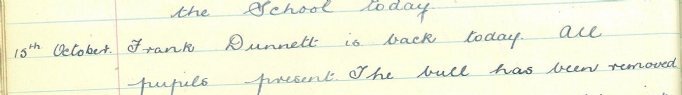 the School today
15th October. Frank Dunnett is back today. All
pupils present. The bull has been removed